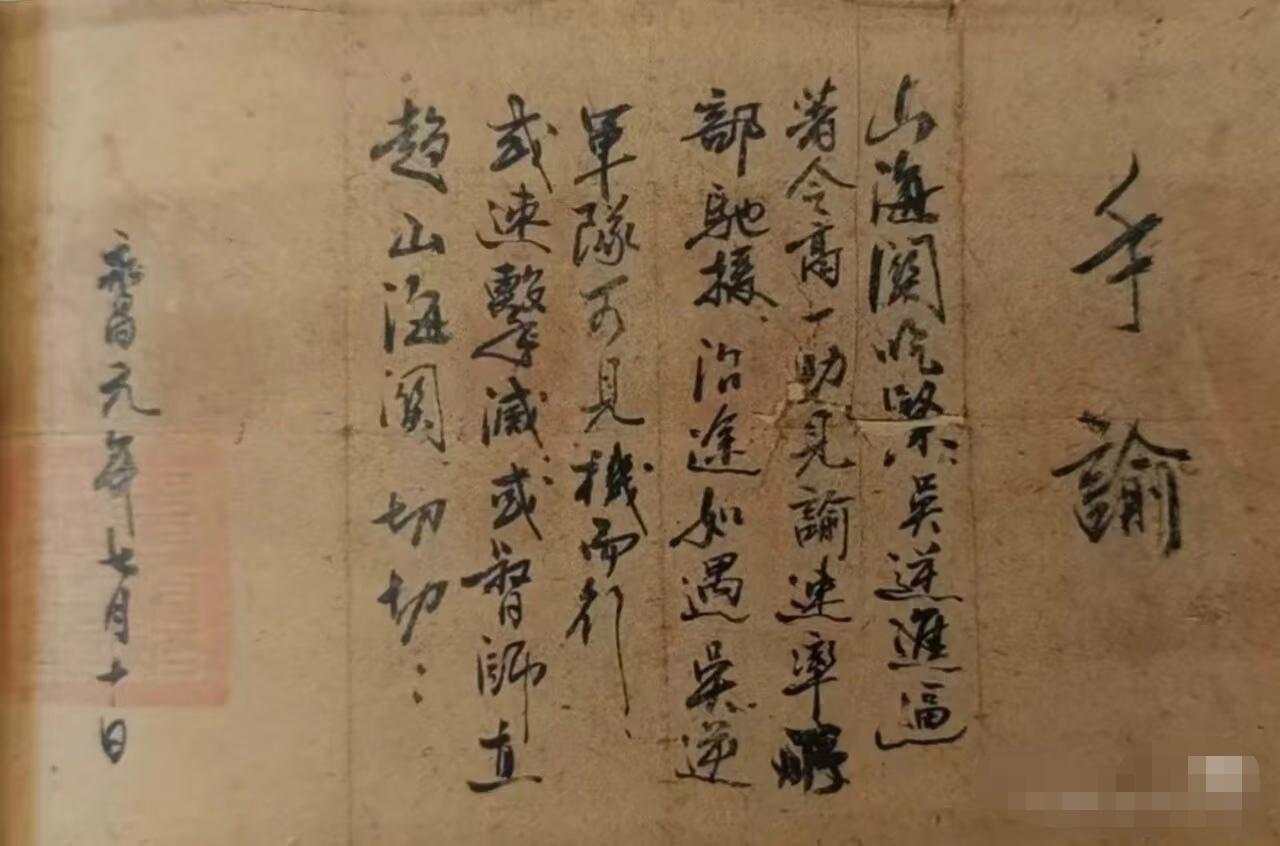 手諭
山海関吃緊吳逆進逼
著令高一助見諭速率
部馳援沿途如遇吳逆
軍隊可見機而行
或速擊滅或督師直
趨山海関切切
永昌元年七月十日